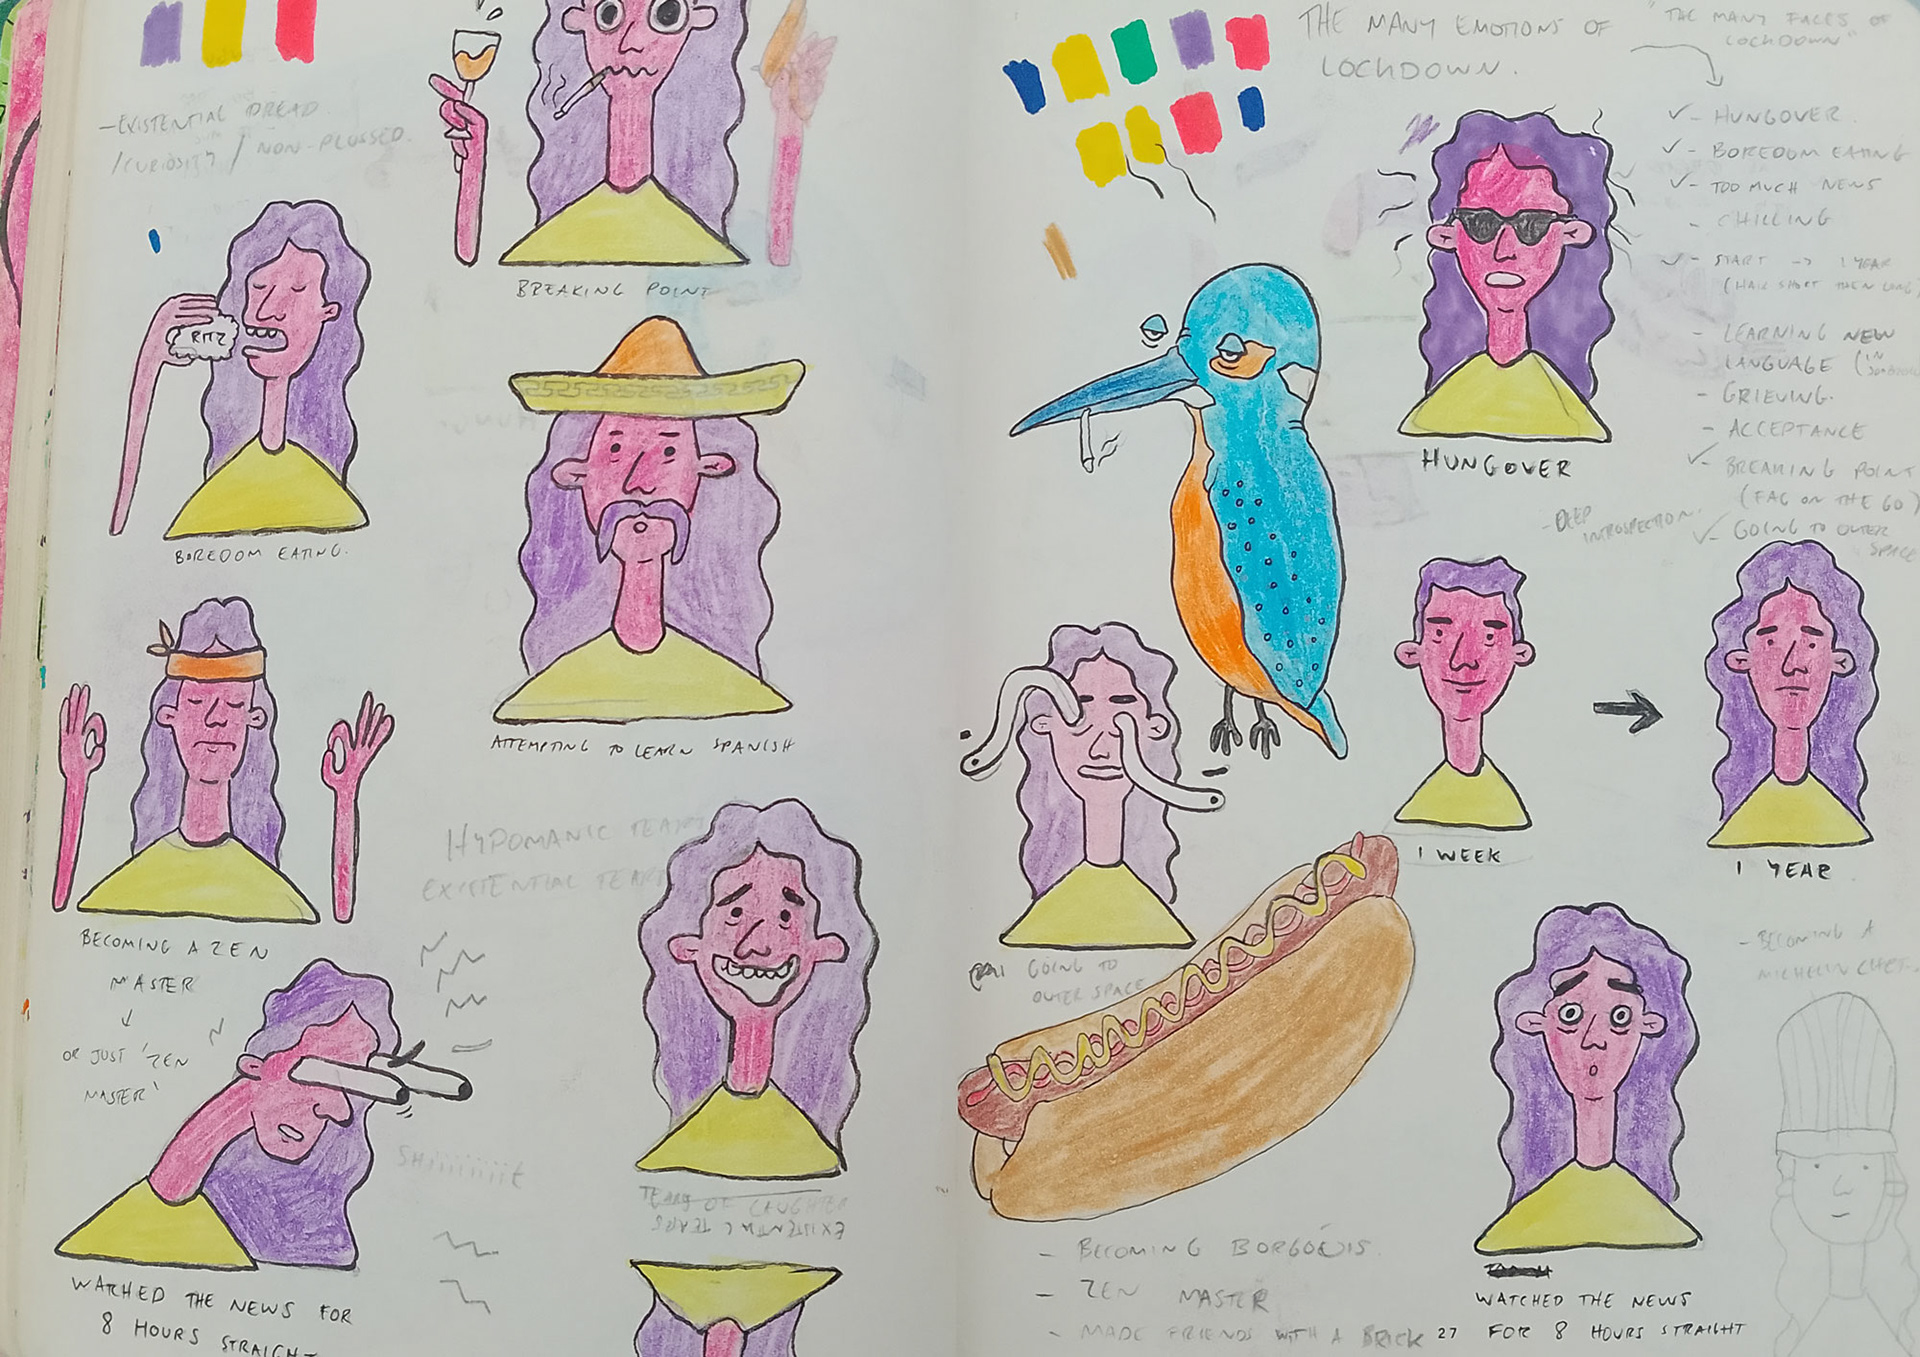 - EXISTENTIAL DREAD
/CURIOSITY / NON-PLUSSED.
BREAKING POINT
RITZ
BOREDOM EATING.
ATTEMPTING TO LEARN SPANISH
BECOMING A ZEN
MASTER
OR JUST 'ZEN
MASTER'
HYPOMANIC TEARS
EXISTENTIAL TEARS
SHiiiiiiit
WATCHED THE NEWS FOR
8 HOURS STRAIGHT
TEARS OF LAUGHTER
EXISTENTIAL TEARS
THE MANY EMOTIONS OF
LOCKDOWN.
"THE MANY FACES OF
LOCKDOWN"
- HUNGOVER
- BOREDOM EATING
- TOO MUCH NEWS
- CHILLING
- START -> 1 YEAR
(HAIR SHORT THEN LONG)
- LEARNING NEW
LANGUAGE (IN
- GRIEVING.
- ACCEPTANCE
- BREAKING POINT
(FAG ON THE GO)
- GOING TO OUTER
SPACE
HUNGOVER
- DEEP
INTROSPECTION.
1 WEEK
1 YEAR
GOING TO
OUTER SPACE
- BECOMING A
MICHELIN CHEF
- BECOMING BORGOEIS.
- ZEN MASTER
- MADE FRIENDS WITH A BRICK
27
WATCHED THE NEWS
FOR 8 HOURS STRAIGHT